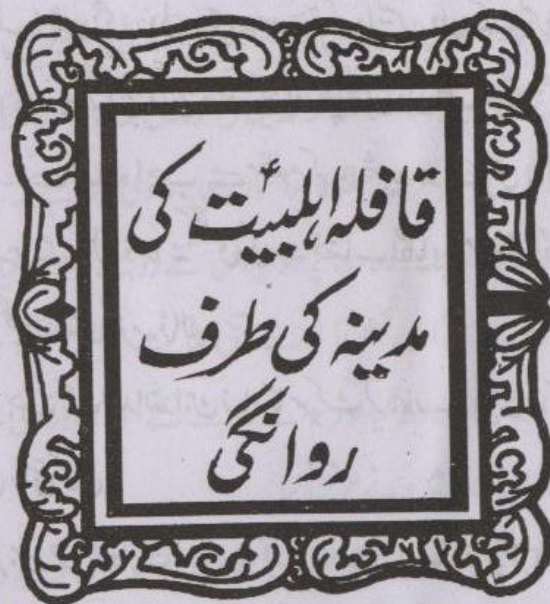 قافلہ اہلبیتؑ کی
مدینہ کی طرف
روانگی